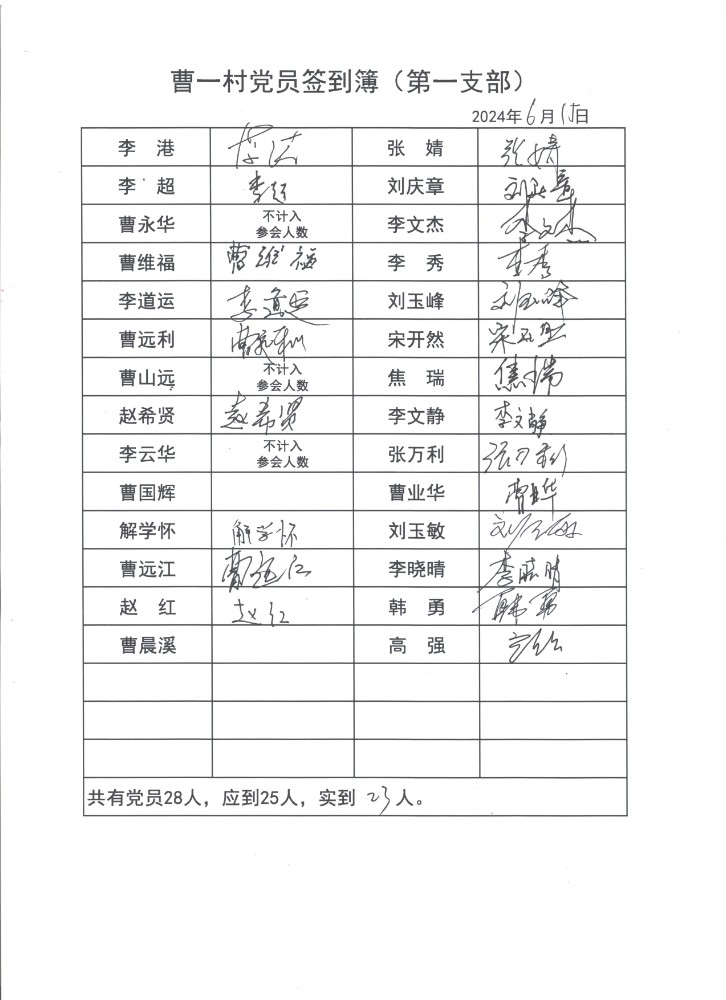 曹一村党员签到簿（第一支部）
2024年6月15日
李 港 李港 张 婧 张婧
李 超 李超 刘庆章 刘庆章
曹永华 不计入参会人数 李文杰 李文杰
曹维福 曹维福 李 秀 李秀
李道运 李道运 刘玉峰 刘玉峰
曹远利 曹远利 宋开然 宋开然
曹山远 不计入参会人数 焦 瑞 焦瑞
赵希贤 赵希贤 李文静 李文静
李云华 不计入参会人数 张万利 张万利
曹国辉 曹业华 曹业华
解学怀 解学怀 刘玉敏 刘玉敏
曹远江 曹远江 李晓晴 李晓晴
赵 红 赵红 韩 勇 韩勇
曹晨溪 高 强 高强
共有党员28人，应到25人，实到 23 人。